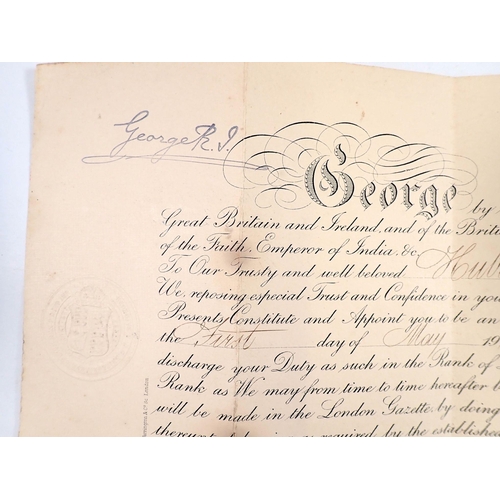 George R. I.
George by
Great Britain and Ireland, and of the Brit
of the Faith, Emperor of India, &c.
To Our Trusty and well beloved
We, reposing especial Trust and Confidence in you
Presents, Constitute and Appoint you to be an
the First day of May 19
discharge your Duty as such in the Rank of
Rank as We may from time to time hereafter
will be made in the London Gazette, by doing
required by the established